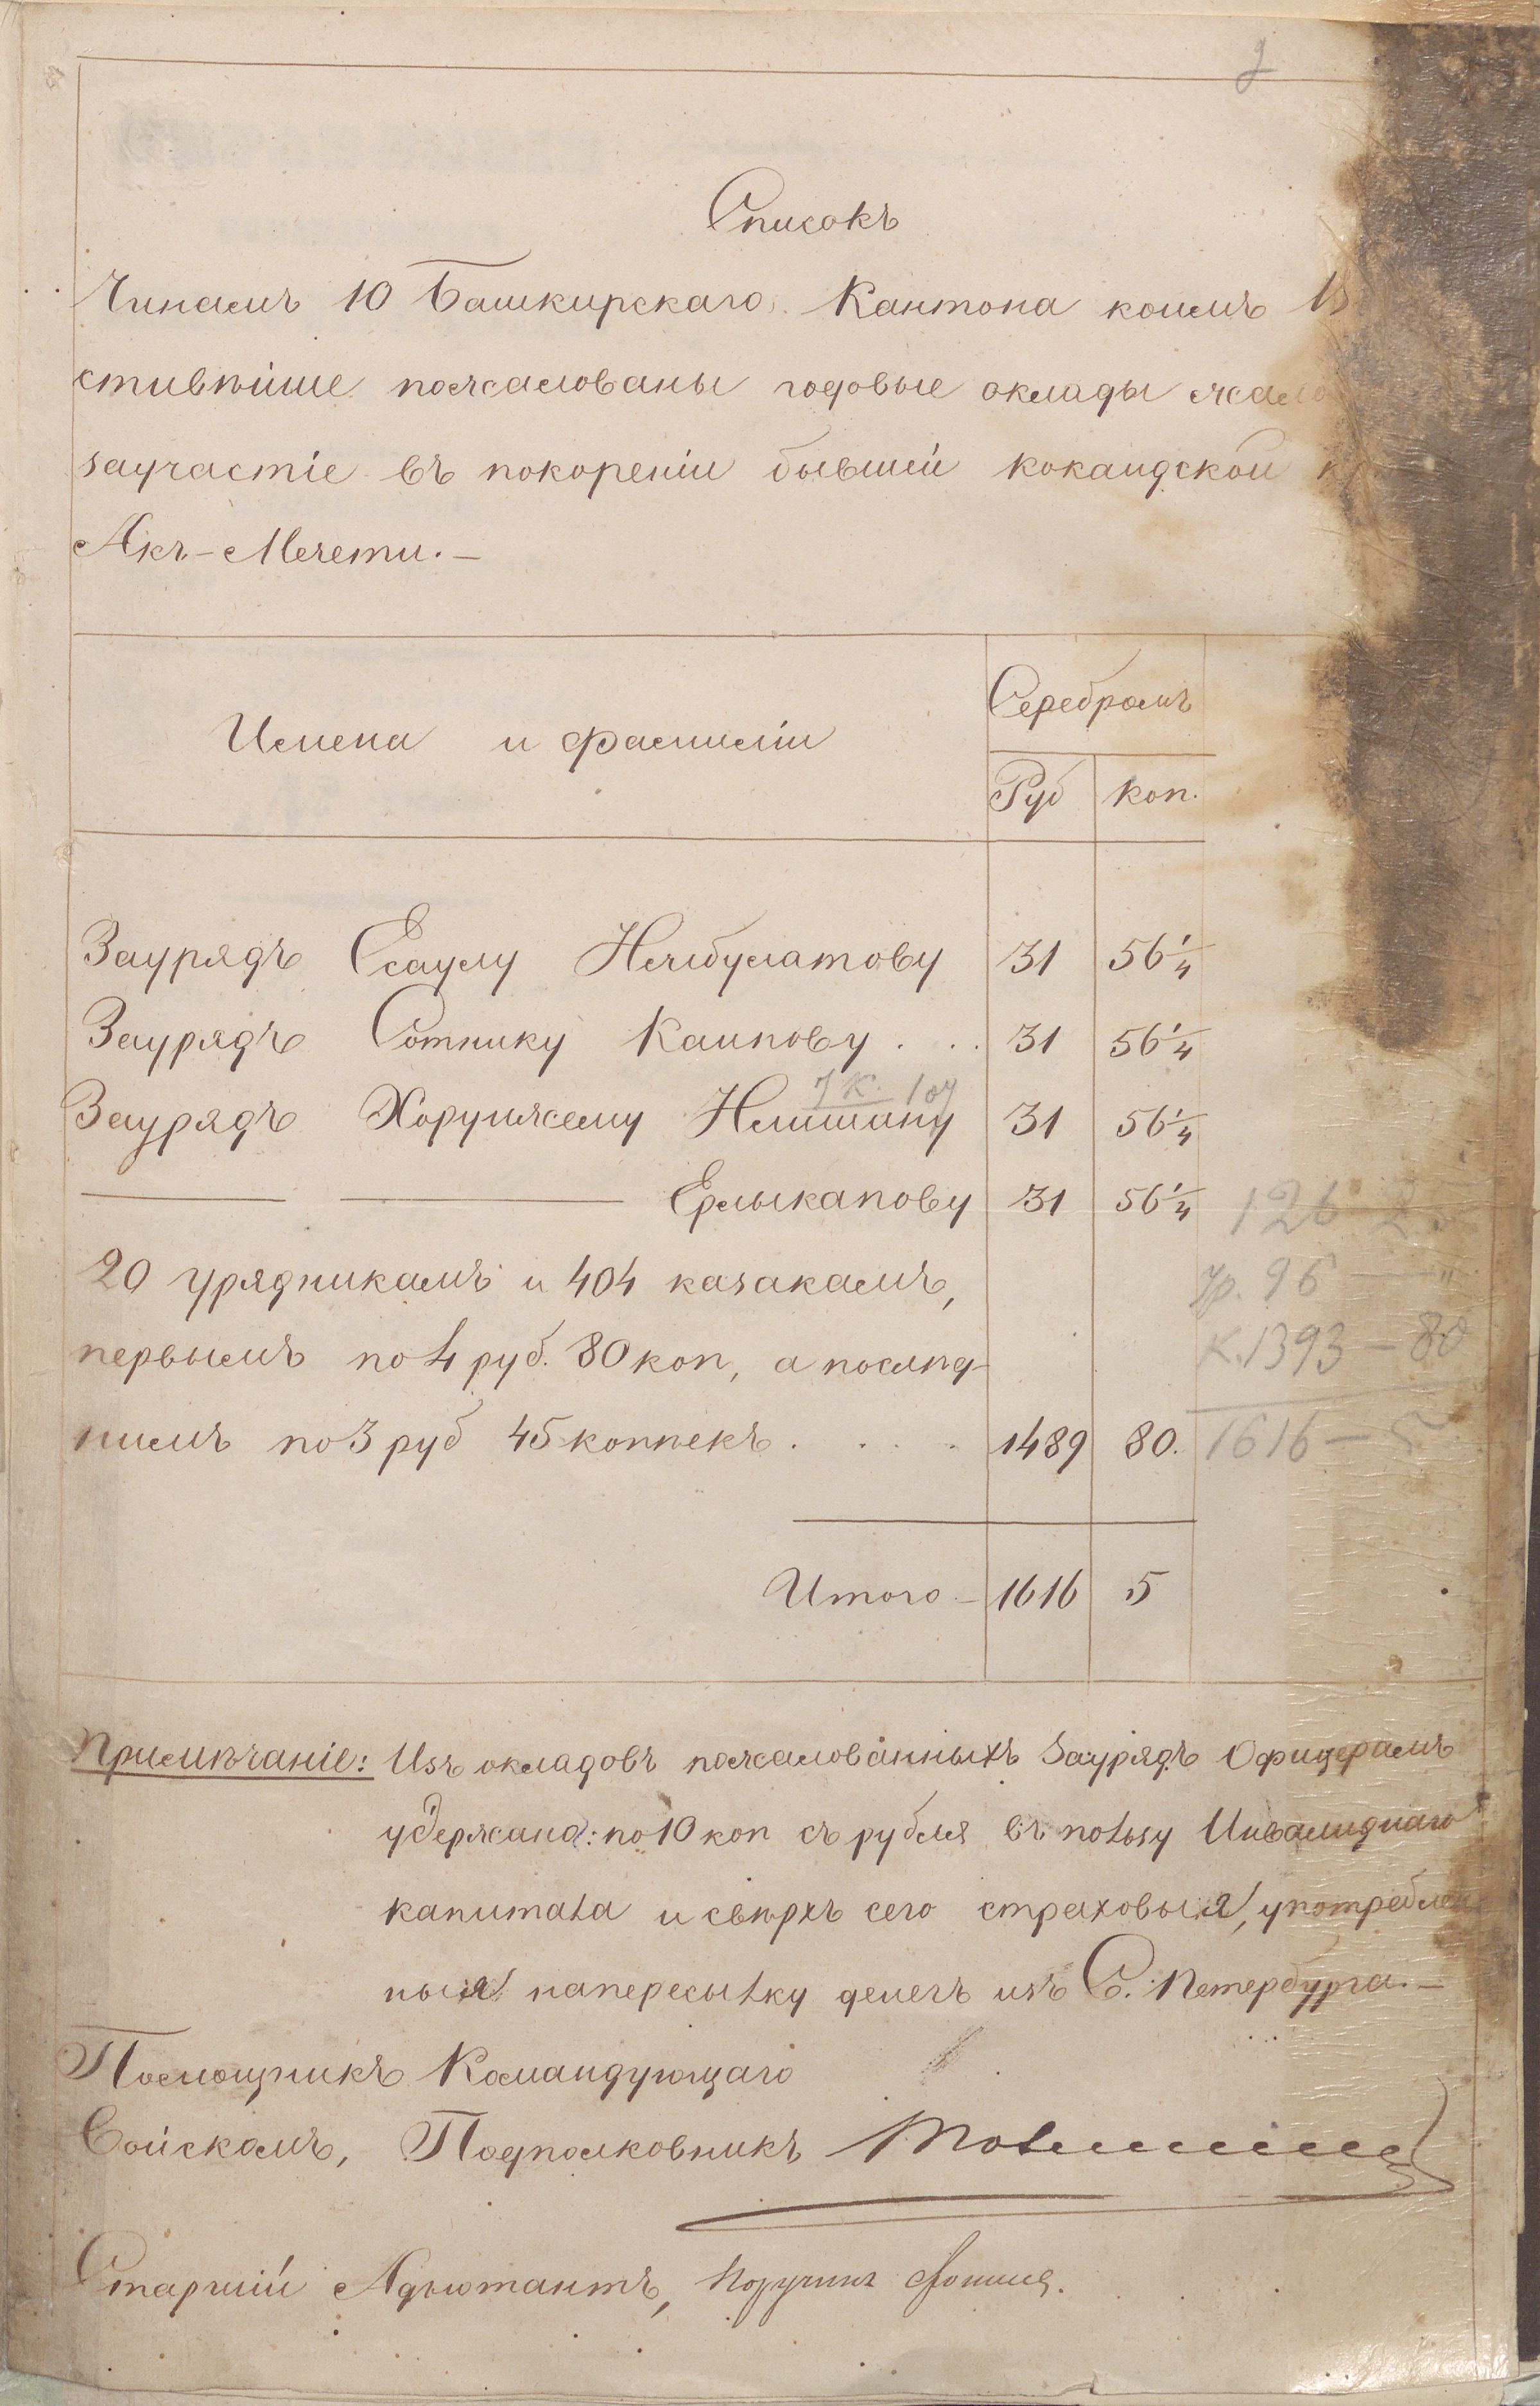 2
Списокъ
Чинамъ 10 Башкирскаго Кантона коимъ В
стивѣйше пожалованы годовые оклады жало
заучастіе въ покореніи бывшей кокандской кр
Акъ-Мечети.—
Имена и фамиліи
Серебромъ
Руб коп.
Заурядъ Есаулу Нежбулатову 31 56 1/4
Заурядъ Сотнику Каипову . . . 31 56 1/4
7 к. 104
Заурядъ Хорунжему 31 56 1/4
——— ——— Ерлыкапову 31 56 1/4 126 2
20 урядникамъ и 404 казакамъ,
Ур. 96 — "
первымъ по 4 руб. 80 коп, а послѣд-
К. 1393 — 80
нимъ по 3 руб 45 копѣекъ . . . . 1489 80. 1616 — 5
Итого — 1616 5
Примѣчаніе: Изъ окладовъ пожалованныхъ Заурядъ Офицерамъ
удержано: по 10 коп съ рубля въ пользу Инвалиднаго
капитала и сверхъ сего страховыя, употреблен
ныя напересылку денегъ изъ С. Петербурга.—
Помощникъ Командующаго
Войскомъ, Подполковникъ
Старшій Адъютантъ, Поручикъ Фомин.